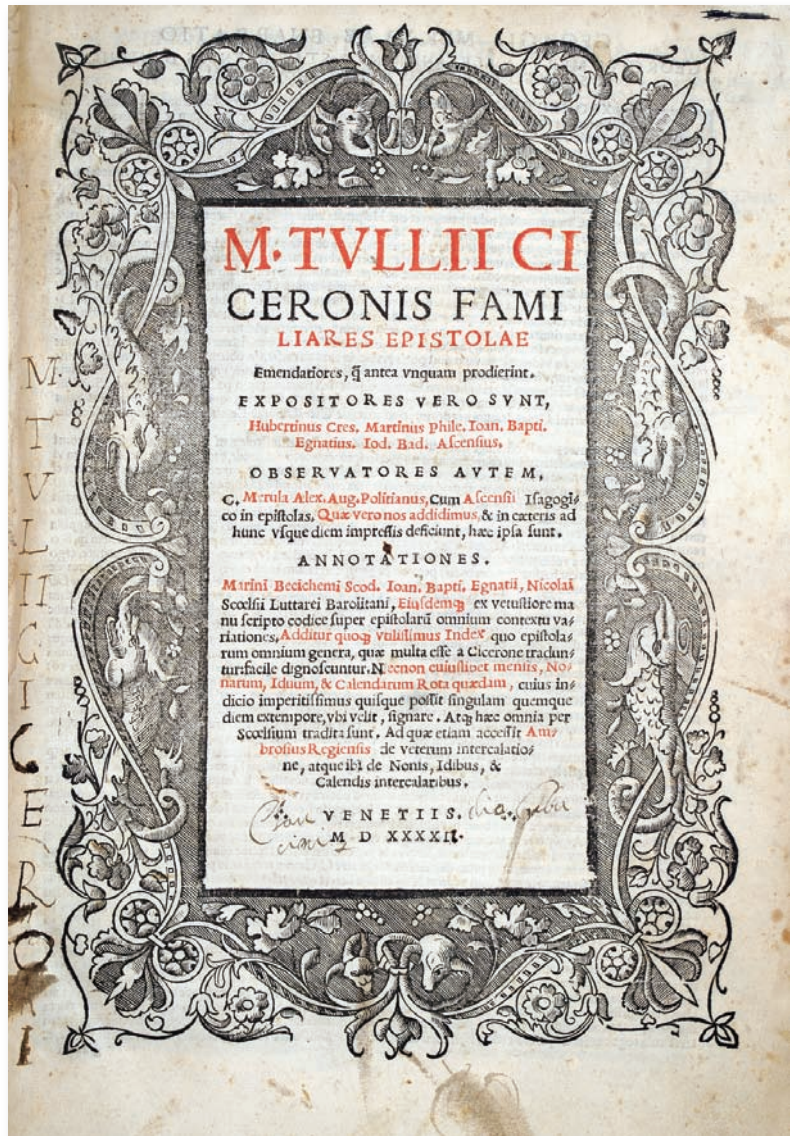 M. TVLLII CI
CERONIS FAMI
LIARES EPISTOLAE
Emendatiores, q̃ antea vnquam prodierint.
EXPOSITORES VERO SVNT,
Hubertinus Cres. Martinus Phile. Ioan. Bapti.
Egnatius. Iod. Bad. Ascensius.
OBSERVATORES AVTEM,
G. Merula Alex. Aug. Politianus, Cum Ascensii Isagogi-
co in epistolas. Quæ vero nos addidimus, & in cæteris ad
hunc vsque diem impressis deficiunt, hæc ipsa sunt.
ANNOTATIONES.
Marini Becichemi Scod. Ioan. Bapti. Egnatii, Nicolai
Scoelsii Luttarei Barolitani, Eiusdemq; ex vetustiore ma
nu scripto codice super epistolarũ omnium contextu va-
riationes. Additur quoq; vtilissimus Index quo epistola-
rum omnium genera, quæ multa esse a Cicerone tradun-
tur: facile dignoscuntur. Necnon cuiuslibet mensis, No-
narum, Iduum, & Calendarum Rota quædam, cuius in-
dicio imperitissimus quisque possit singulam quemque
diem extempore, vbi velit, signare. Atq; hæc omnia per
Scoelsium tradita sunt. Ad quæ etiam accessit Am-
brosius Regiensis de veterum intercalatio-
ne, atque ibi de Nonis, Idibus, &
Calendis intercalaribus.
VENETIIS.
M D XXXXII.
M. TVLII CICERONI